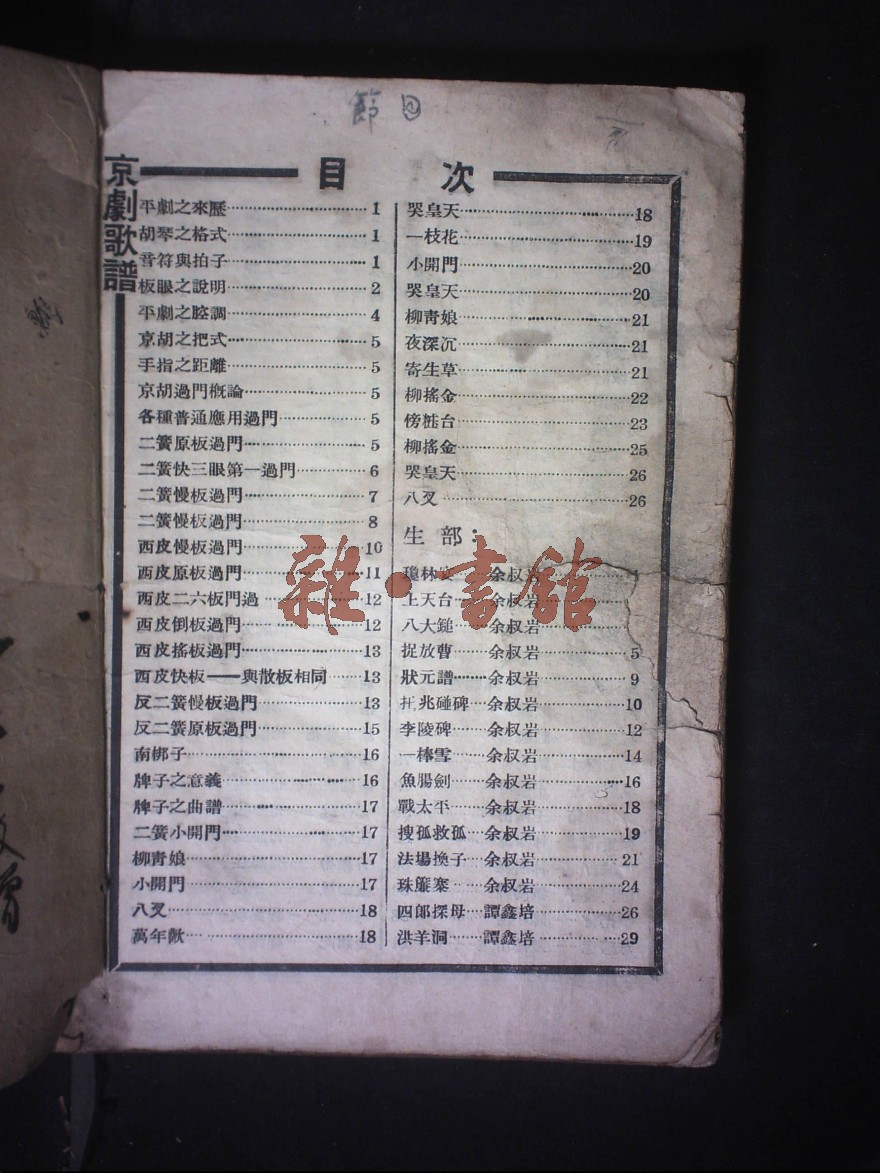 節目
目次
京劇歌譜
平劇之來歷 1
胡琴之格式 1
音符與拍子 1
板眼之說明 2
平劇之腔調 4
京胡之把式 5
手指之距離 5
京胡過門概論 5
各種普通應用過門 5
二簧原板過門 5
二簧快三眼第一過門 6
二簧慢板過門 7
二簧慢板過門 8
西皮慢板過門 10
西皮原板過門 11
西皮二六板門過 12
西皮倒板過門 12
西皮搖板過門 13
西皮快板——與散板相同 13
反二簧慢板過門 13
反二簧原板過門 15
南梆子 16
牌子之意義 16
牌子之曲譜 17
二簧小開門 17
柳青娘 17
小開門 17
八叉 18
萬年歡 18
哭皇天 18
一枝花 19
小開門 20
哭皇天 20
柳青娘 21
夜深沉 21
寄生草 21
柳搖金 22
傍粧台 23
柳搖金 25
哭皇天 26
八叉 26
生部：
瓊林宴 余叔岩
上天台 余叔岩
八大鎚 余叔岩
捉放曹 余叔岩 5
狀元譜 余叔岩 9
托兆碰碑 余叔岩 10
李陵碑 余叔岩 12
一棒雪 余叔岩 14
魚腸劍 余叔岩 16
戰太平 余叔岩 18
搜孤救孤 余叔岩 19
法場換子 余叔岩 21
珠簾寨 余叔岩 24
四郎探母 譚鑫培 26
洪羊洞 譚鑫培 29
雜·書館